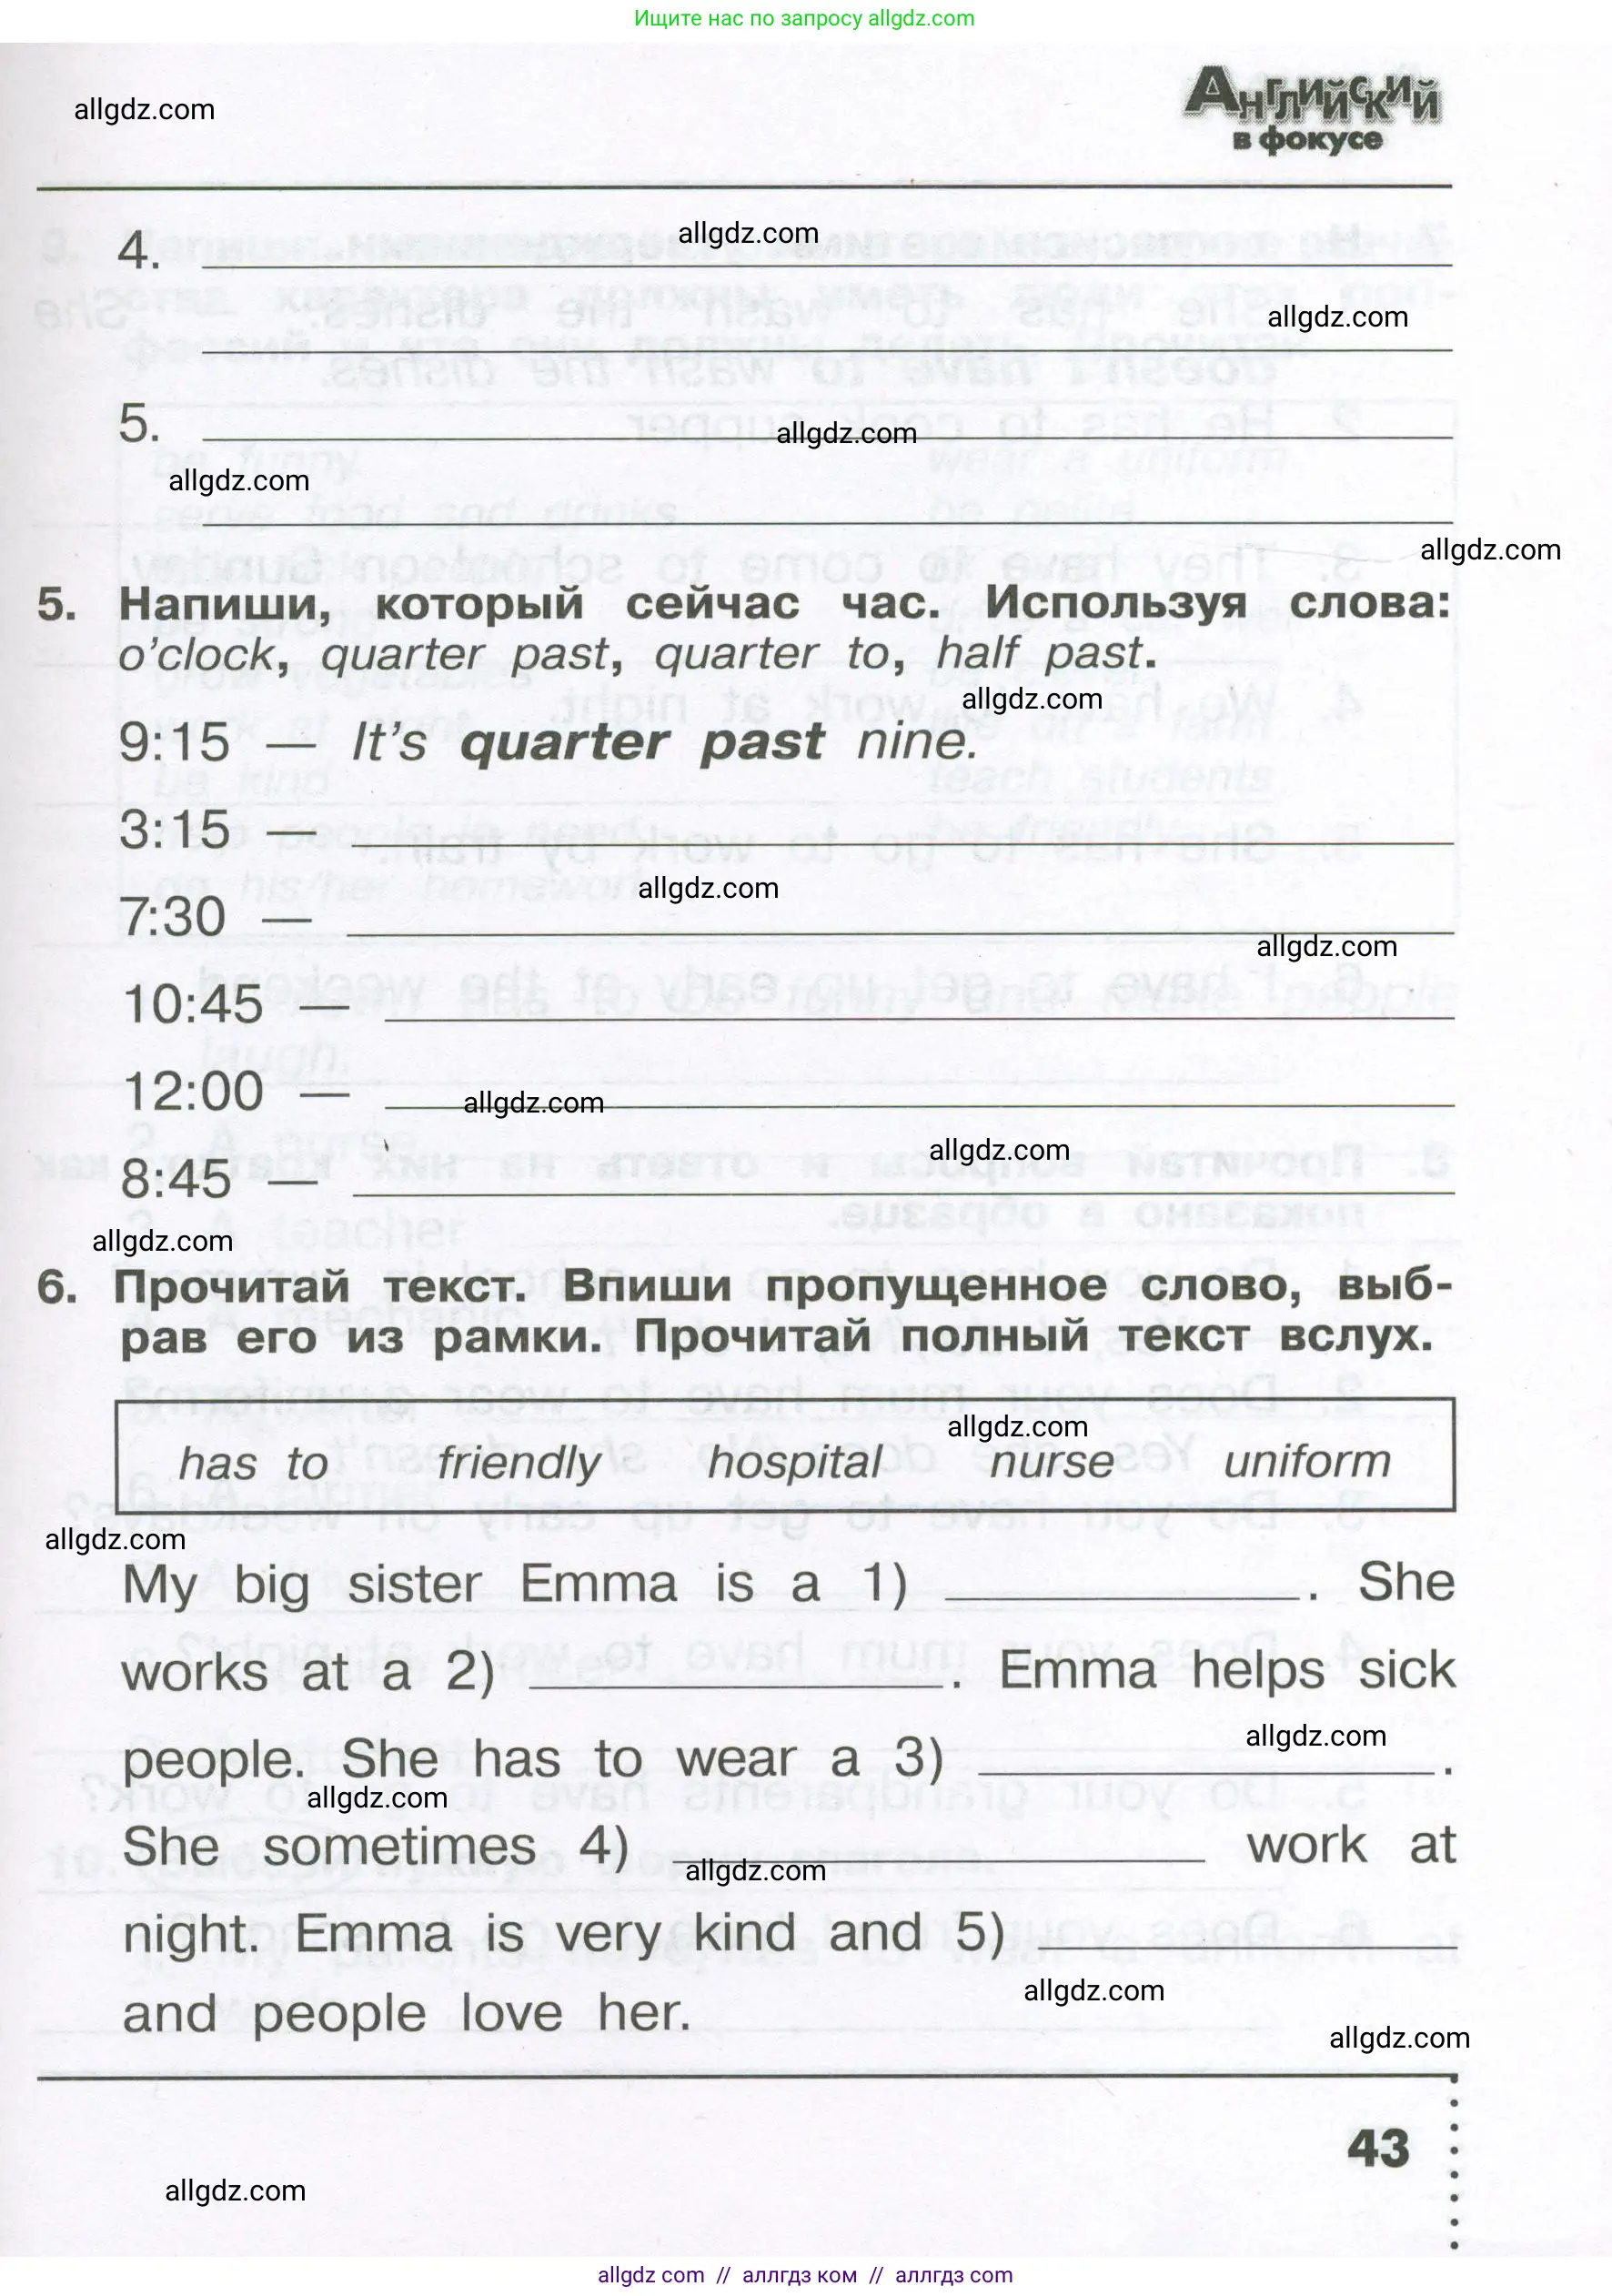 Ищите нас по запросу allgdz.com
allgdz.com
Английский
в фокусе
4.
allgdz.com
allgdz.com
5.
allgdz.com
allgdz.com
allgdz.com
5. Напиши, который сейчас час. Используя слова:
o'clock, quarter past, quarter to, half past.
allgdz.com
9:15 — It's quarter past nine.
3:15 —
allgdz.com
7:30 —
allgdz.com
10:45 —
12:00 —
allgdz.com
allgdz.com
8:45 —
allgdz.com
6. Прочитай текст. Впиши пропущенное слово, выб-
рав его из рамки. Прочитай полный текст вслух.
allgdz.com
has to friendly hospital nurse uniform
allgdz.com
My big sister Emma is a 1) ____. She
works at a 2) ____. Emma helps sick
allgdz.com
people. She has to wear a 3) ____.
allgdz.com
She sometimes 4) ____ work at
allgdz.com
night. Emma is very kind and 5) ____
allgdz.com
and people love her.
allgdz.com
43
allgdz.com
allgdz com // аллгдз ком // аллгдз com